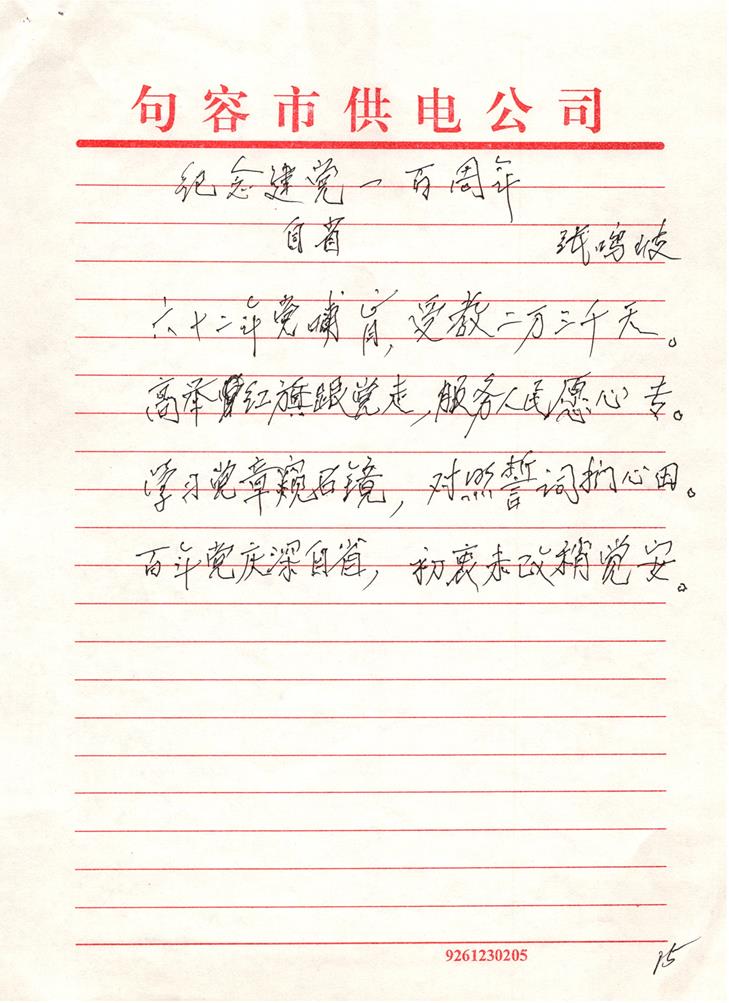 句容市供电公司
纪念建党一百周年
自省 张鸣歧
六十二年党哺育,受教二万三千天。
高举红旗跟党走,服务人民愿心专。
学习党章窥石镜,对照誓词扪心田。
百年党庆深自省,初衷未改稍觉安。
9261230205
15